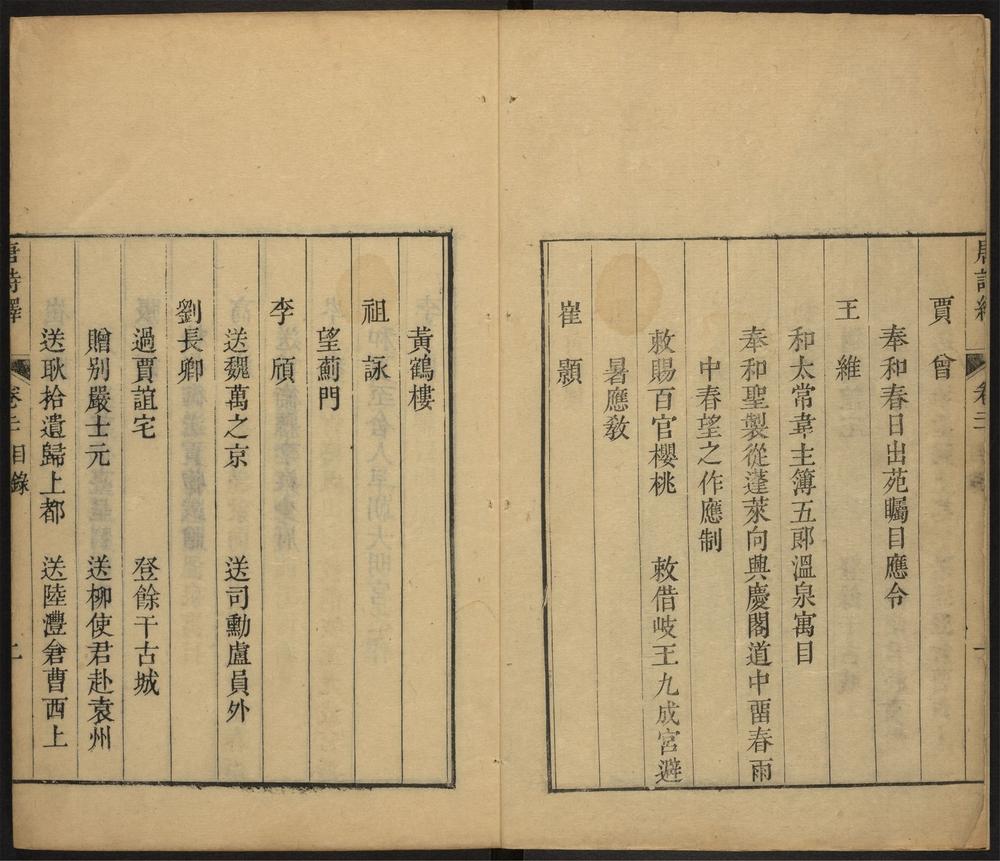 賈曾
奉和春日出苑矚目應令
王維
和太常韋主簿五郎溫泉寓目
奉和聖製從蓬萊向興慶閣道中畱春雨
中春望之作應制
敕賜百官櫻桃　敕借岐王九成宮避
暑應敎
崔顥
黃鶴樓
祖詠
望薊門
李頎
送魏萬之京　送司勳盧員外
劉長卿
過賈誼宅　登餘干古城
贈别嚴士元　送柳使君赴袁州
送耿拾遺歸上都　送陸灃倉曹西上
唐詩繹　卷二　目錄　二